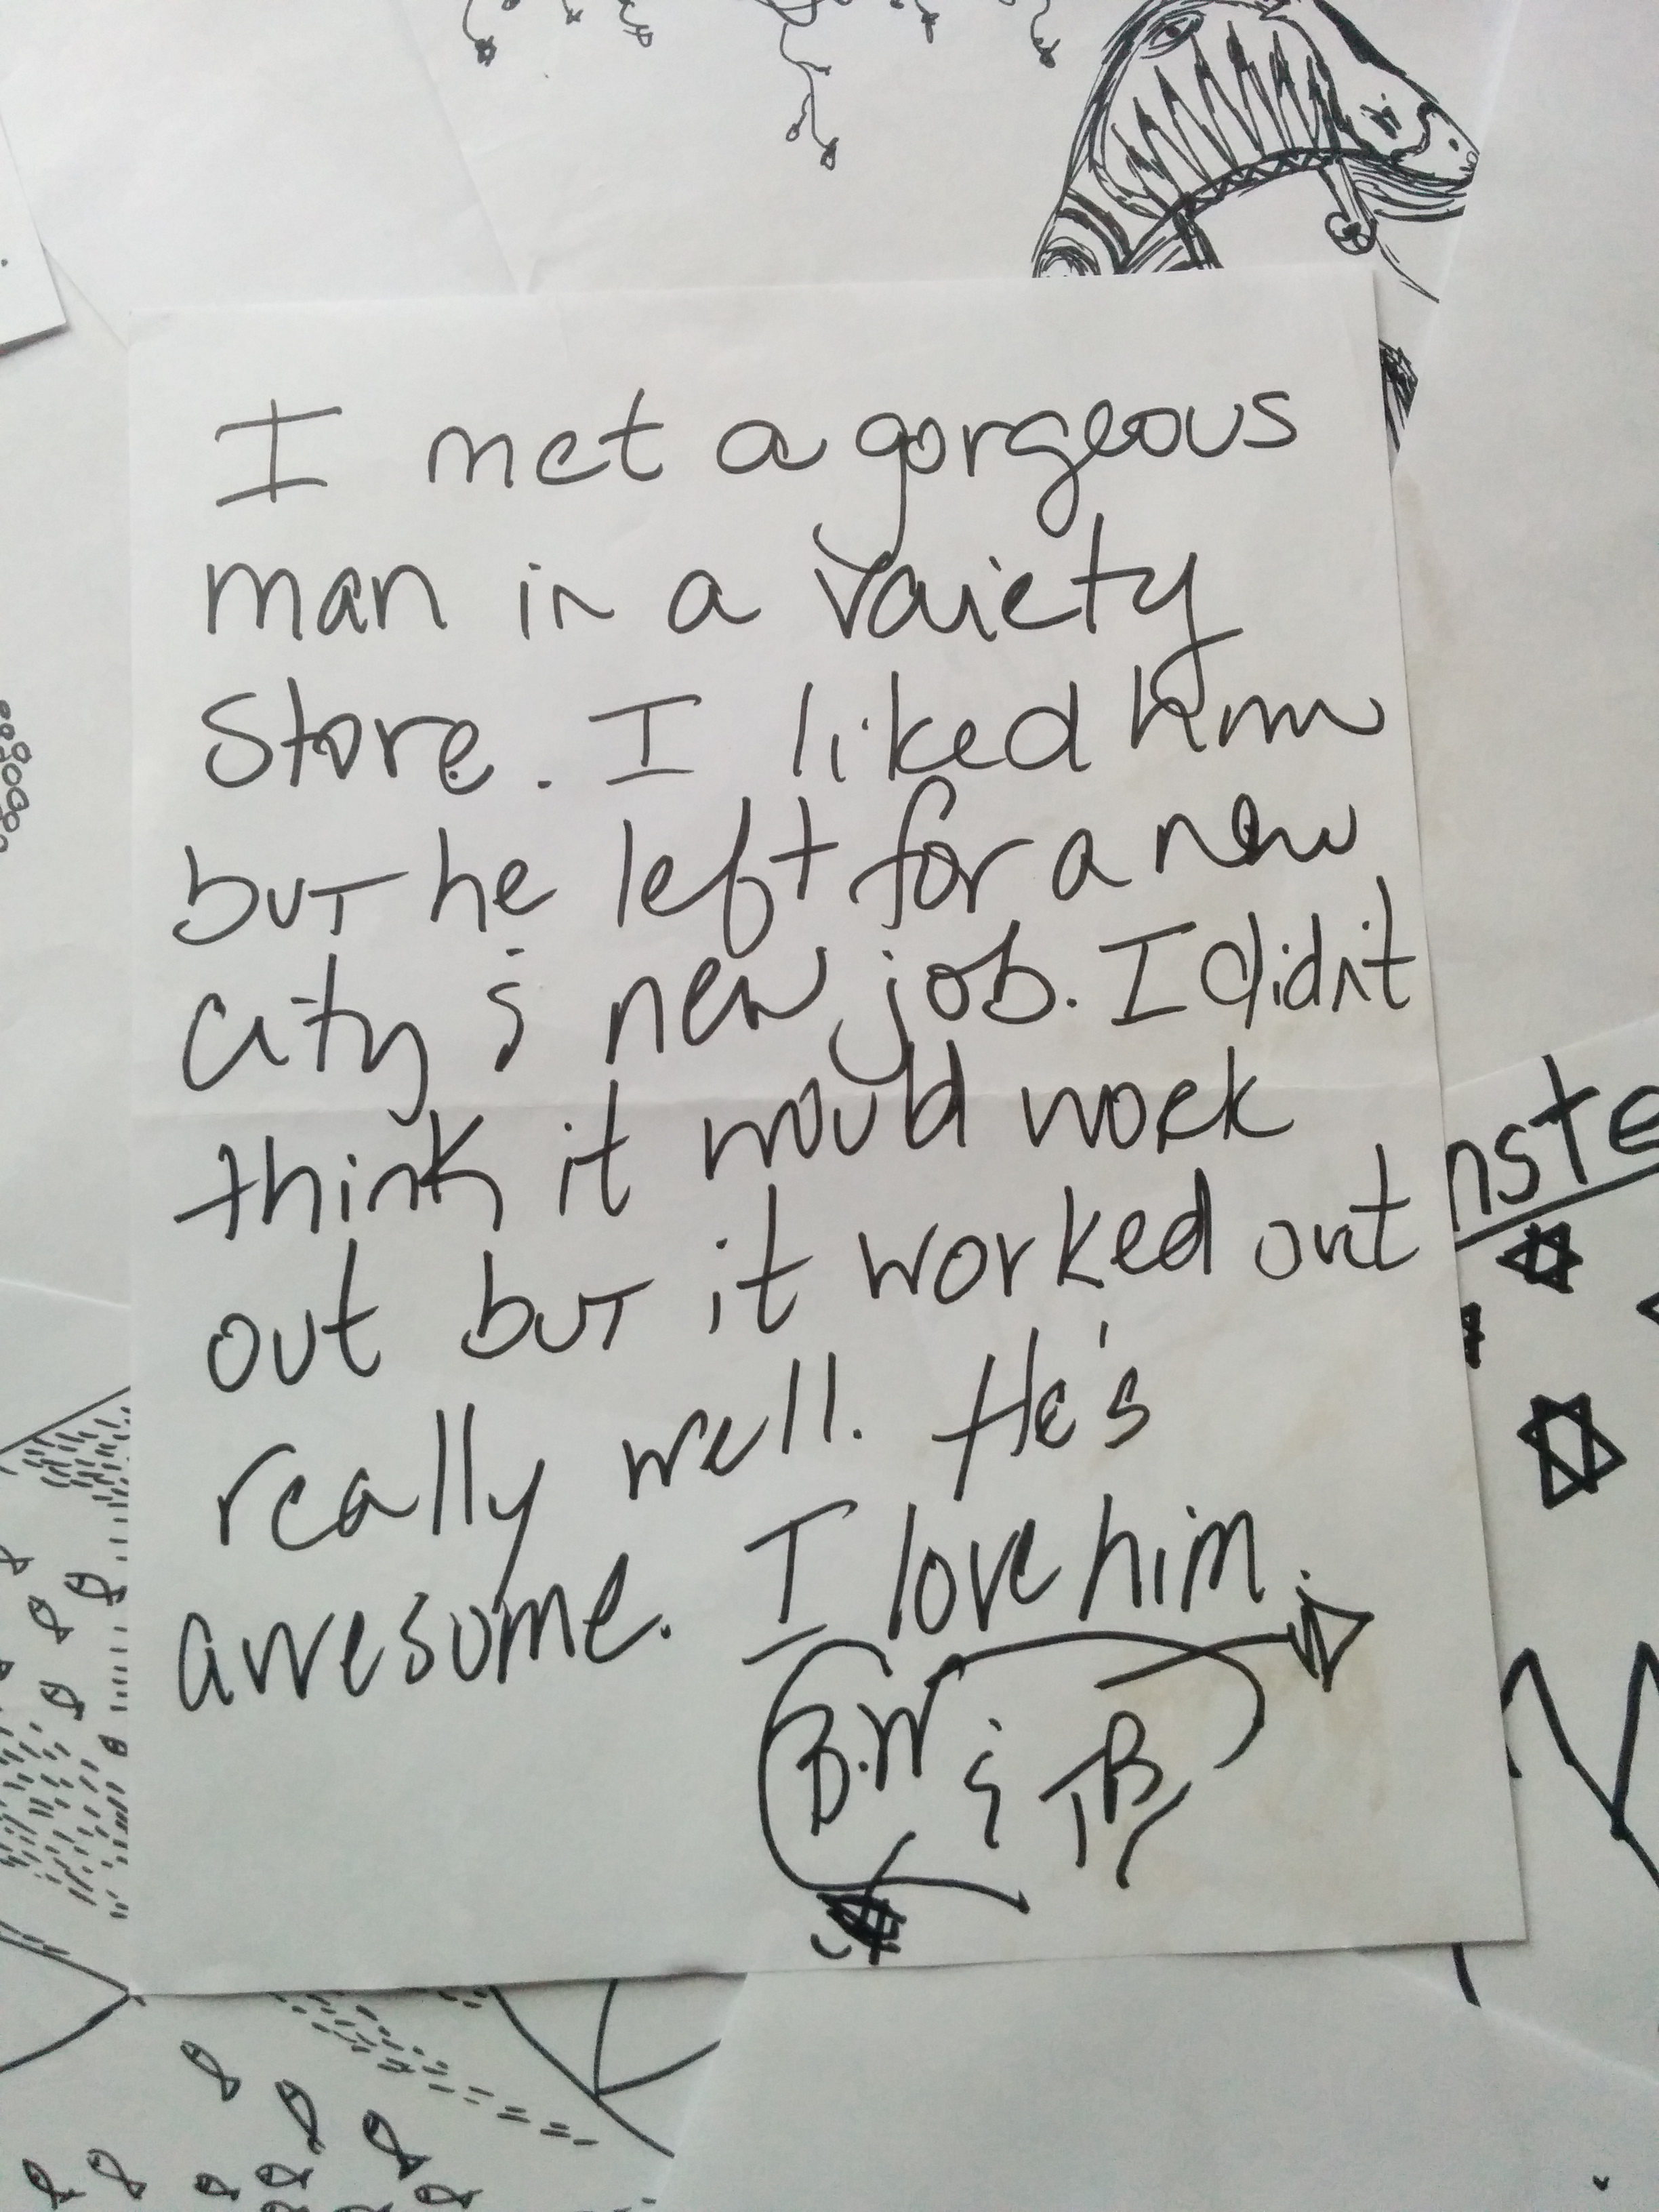 I met a gorgeous
man in a vaiety
store. I liked him
but he left for a new
city & new job. I didn't
think it would work
out but it worked out
really well. He's
awesome. I love him.
B.W & TB
nste